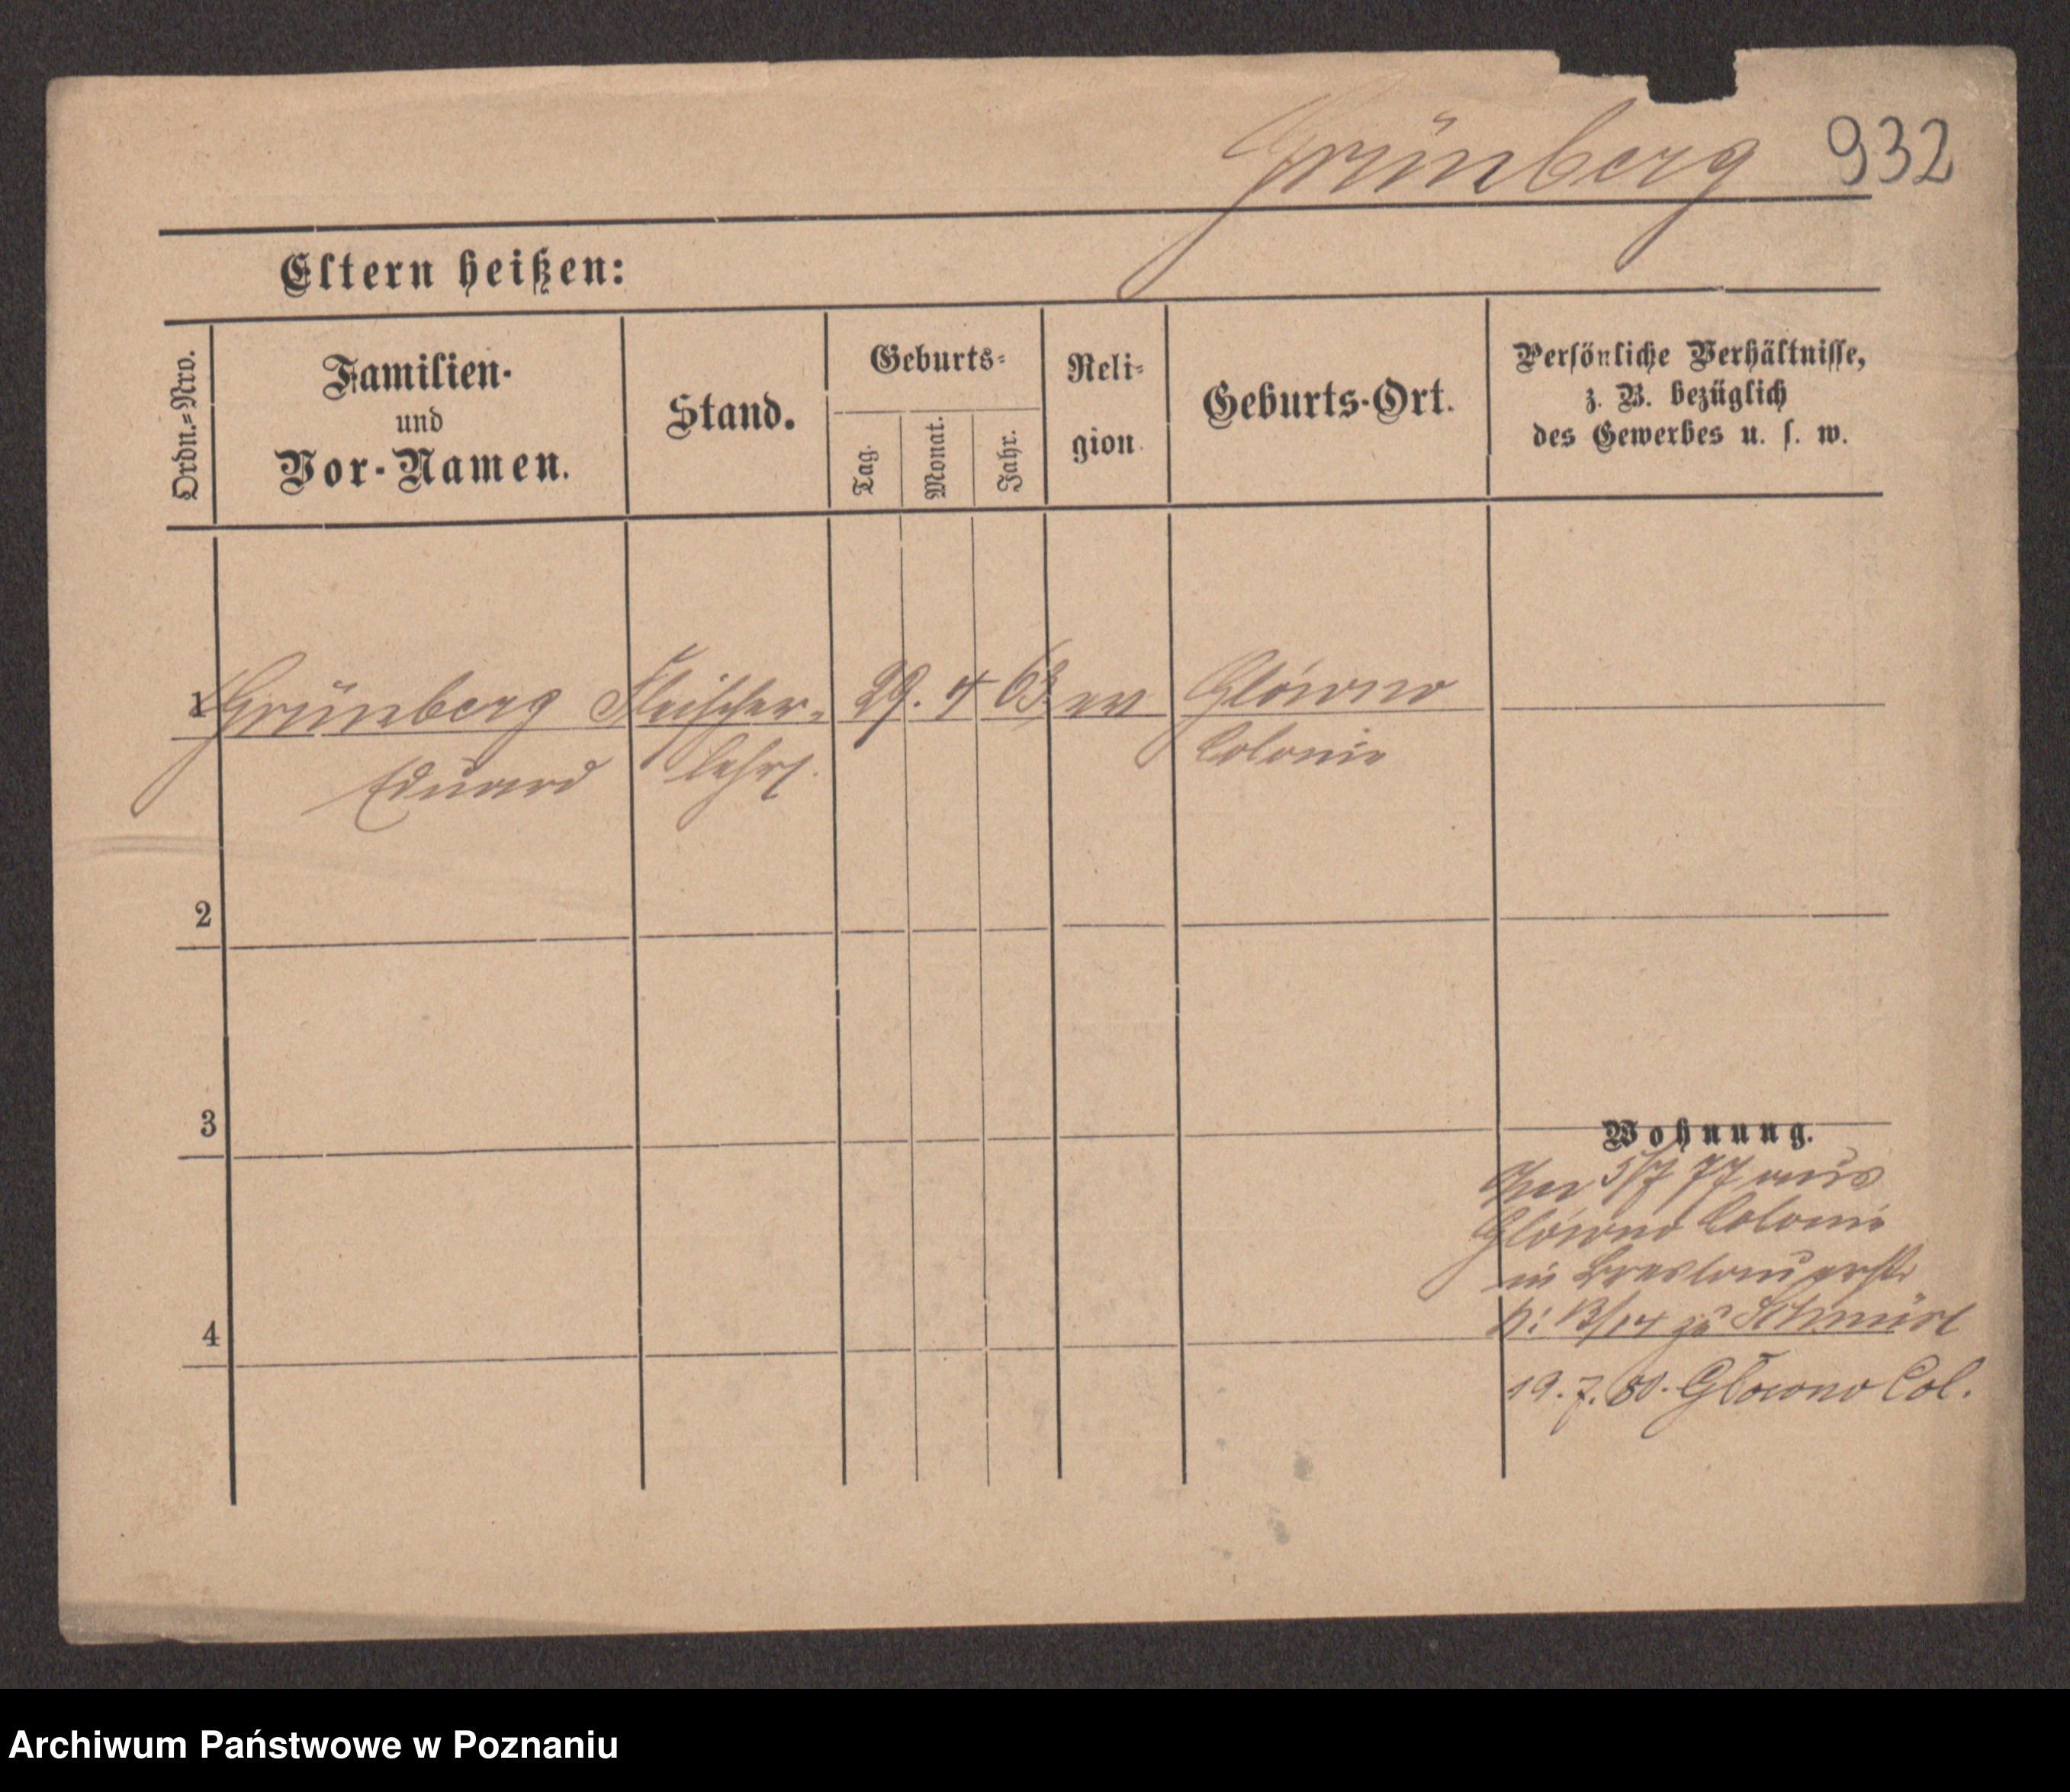 Grünberg 932
Eltern heißen:
Ordn.=Nro.
Familien-
und
Vor-Namen.
Stand.
Geburts=
Tag.
Monat.
Jahr.
Reli=
gion
Geburts-Ort.
Persönliche Verhältnisse,
z. B. bezüglich
des Gewerbes u. s. w.
1 Grünberg Fleischer- 29. 4 63 ev Glówno
Eduard lehrl. Colonie
2
3
Wohnung.
5/7 77 aus
Glówno Colonie
in Breslauerstr
13/14 zu
4
19. 7. 80. Glowno Col.
Archiwum Państwowe w Poznaniu